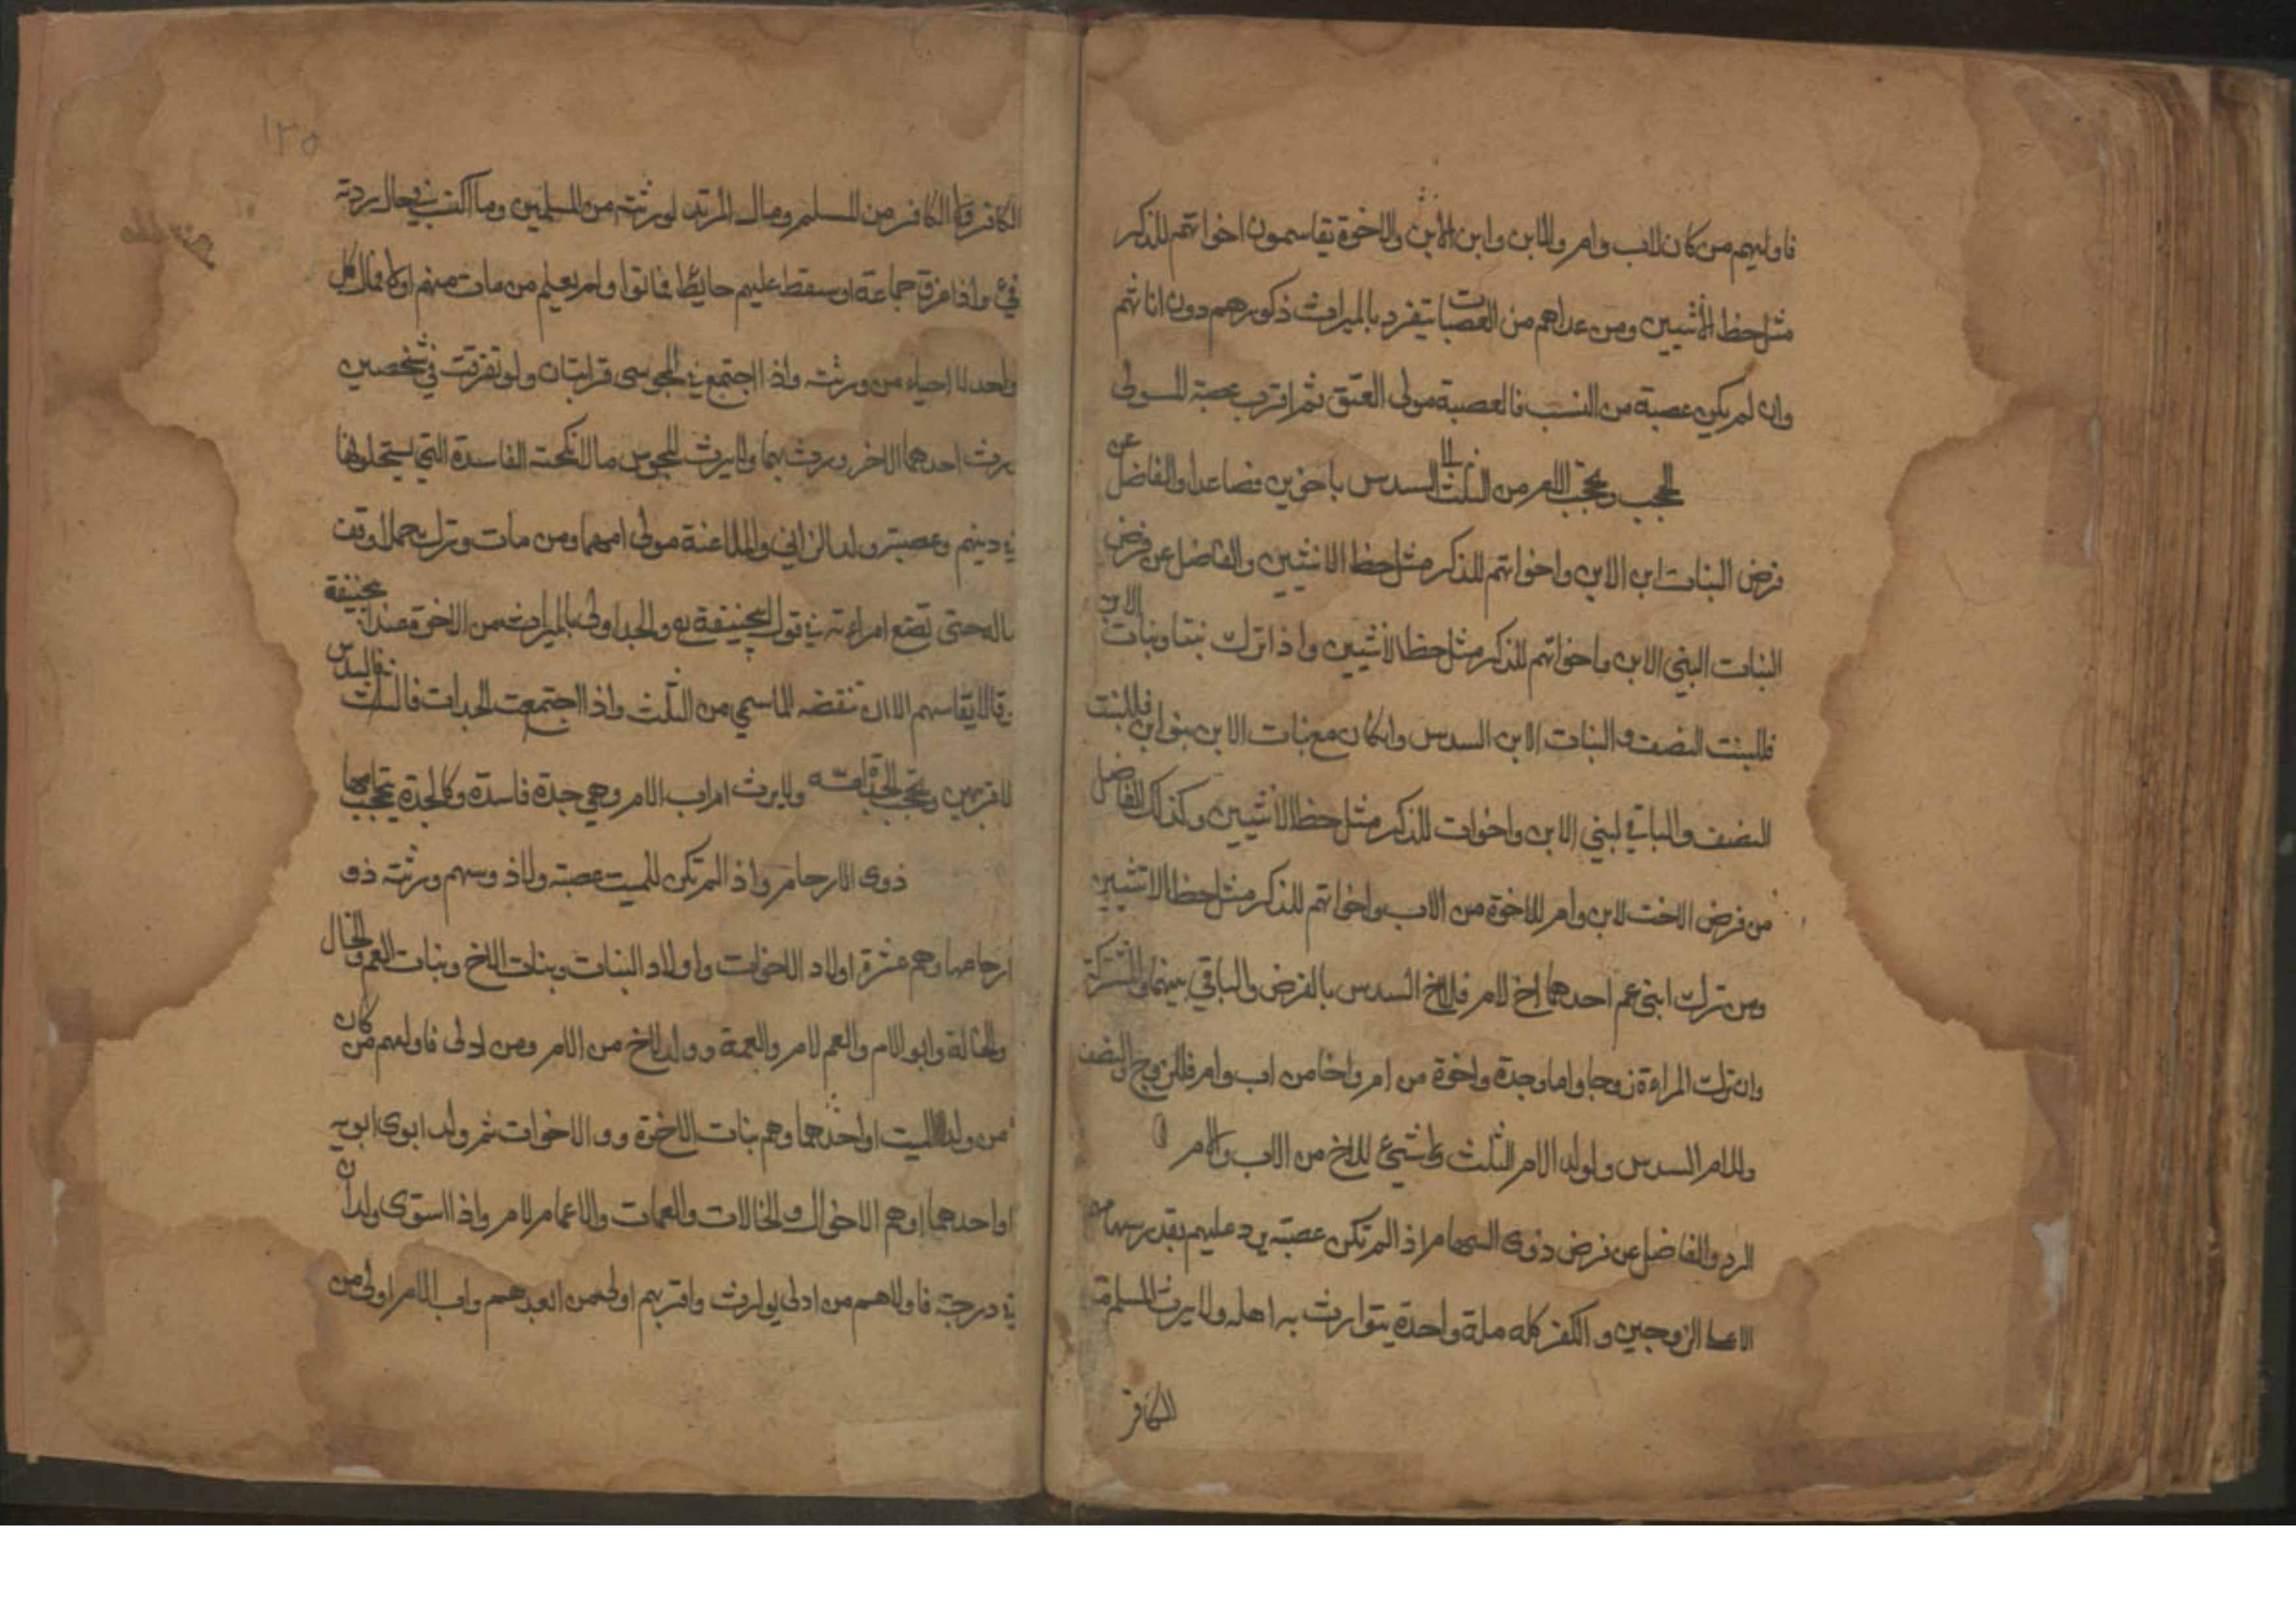 فاوليهم من كان لاب وام والابن وابن الابن والاخوة يقاسمون اخواتهم للذكر
مثل حظ الأنثيين ومن عداهم من العصبات يتفرد بالميراث ذكورهم دون اناثهم
وان لم يكن عصبة من النسب فالعصبة مولى العتق ثم اقرب عصبة المولى
الحجب ويحجب الام من الثلث الى السدس باخوين فصاعدا والفاضل عن
فرض البنات ابن الابن واخواتهم للذكر مثل حظ الانثيين والفاضل عن فرض
البنات البني الابن واخواتهم للذكر مثل حظ الأنثيين واذا ترك بنتا وبنات الابن
فللبنت النصف والبنات الابن السدس وان كان مع بنات الابن بنو ابن فللبنت
النصف والباقي لبني الابن واخوات للذكر مثل حظ الانثيين وكذلك الفاضل
من فرض الاخت لابن وام للاخوة من الاب واخواتهم للذكر مثل حظ الانثيين
ومن ترك ابنى عم احدهما اخ لام فللاخ السدس بالفرض والباقي بينهما والمشتركة
وان تركت المراءة زوجا واما وجدة واخوة من ام واخا من اب وام فللزوج النصف
وللام السدس ولولد الام الثلث ولا شيئ للاخ من الاب والام
الرد والفاضل عن فرض ذوى السهام اذ الم تكن عصبته يرد عليهم بقدر سهامهم
الا على الزوجين والكفر كله ملة واحدة يتوارث به اهله ولا يرث المسلم من
الكافر
١٢٥
الكافر ولا الكافر من المسلم ومال المرتد لورثته من المسلمين وما اكتسب في حال ردته
فيئ واذا غرق جماعة او سقط عليهم حايط فماتوا ولم يعلم من مات منهم اولا فمال كل
واحد للاحياء من ورثته واذا اجتمع في المجوسى قرابتان ولو تفرقت في شخصين
يرث احدهما الاخر ورث بهما ولا يرث المجوس مالانكحته الفاسدة التي يستحلونها
في دينهم وعصبتر ولد الزاني والملاعنة مولى امهما ومن مات وترك حملا وقف
ماله حتى تضع امراءته في قول ابيحنيفة رح والجد اولى بالميراث من الاخوة عند ابيحنيفة
وقالا يقاسهم الا ان تنقضه المقاسمي من الثلث واذا اجتمعت الجدات فالسدس
لاقربهن ويحجب الجد امه ولا يرث ام اب الام وهي جدة فاسدة وكل جدة تحجب امها
ذوى الارحام واذ الم تكن للميت عصبته ولا ذو سهم ورثته ذو
ارحامها وهم عشرة اولاد الاخوات واولاد البنات وبنات الاخ وبنات العم والخال
والخالة وابو الام والعم لام والعمة وولد الاخ من الام ومن ادلى فاولهم من كان
من ولد الميت او احدهما وهم بنات الاخوة وو الاخوات ثم ولد ابوى ابويه
او احدهما وهم الاخوال والخالات والعمات والاعمام لام واذا استوى ولدان
في درجته فاولاهم من ادلى بوارث واقربهم اولى من ابعدهم واب الام اولى من